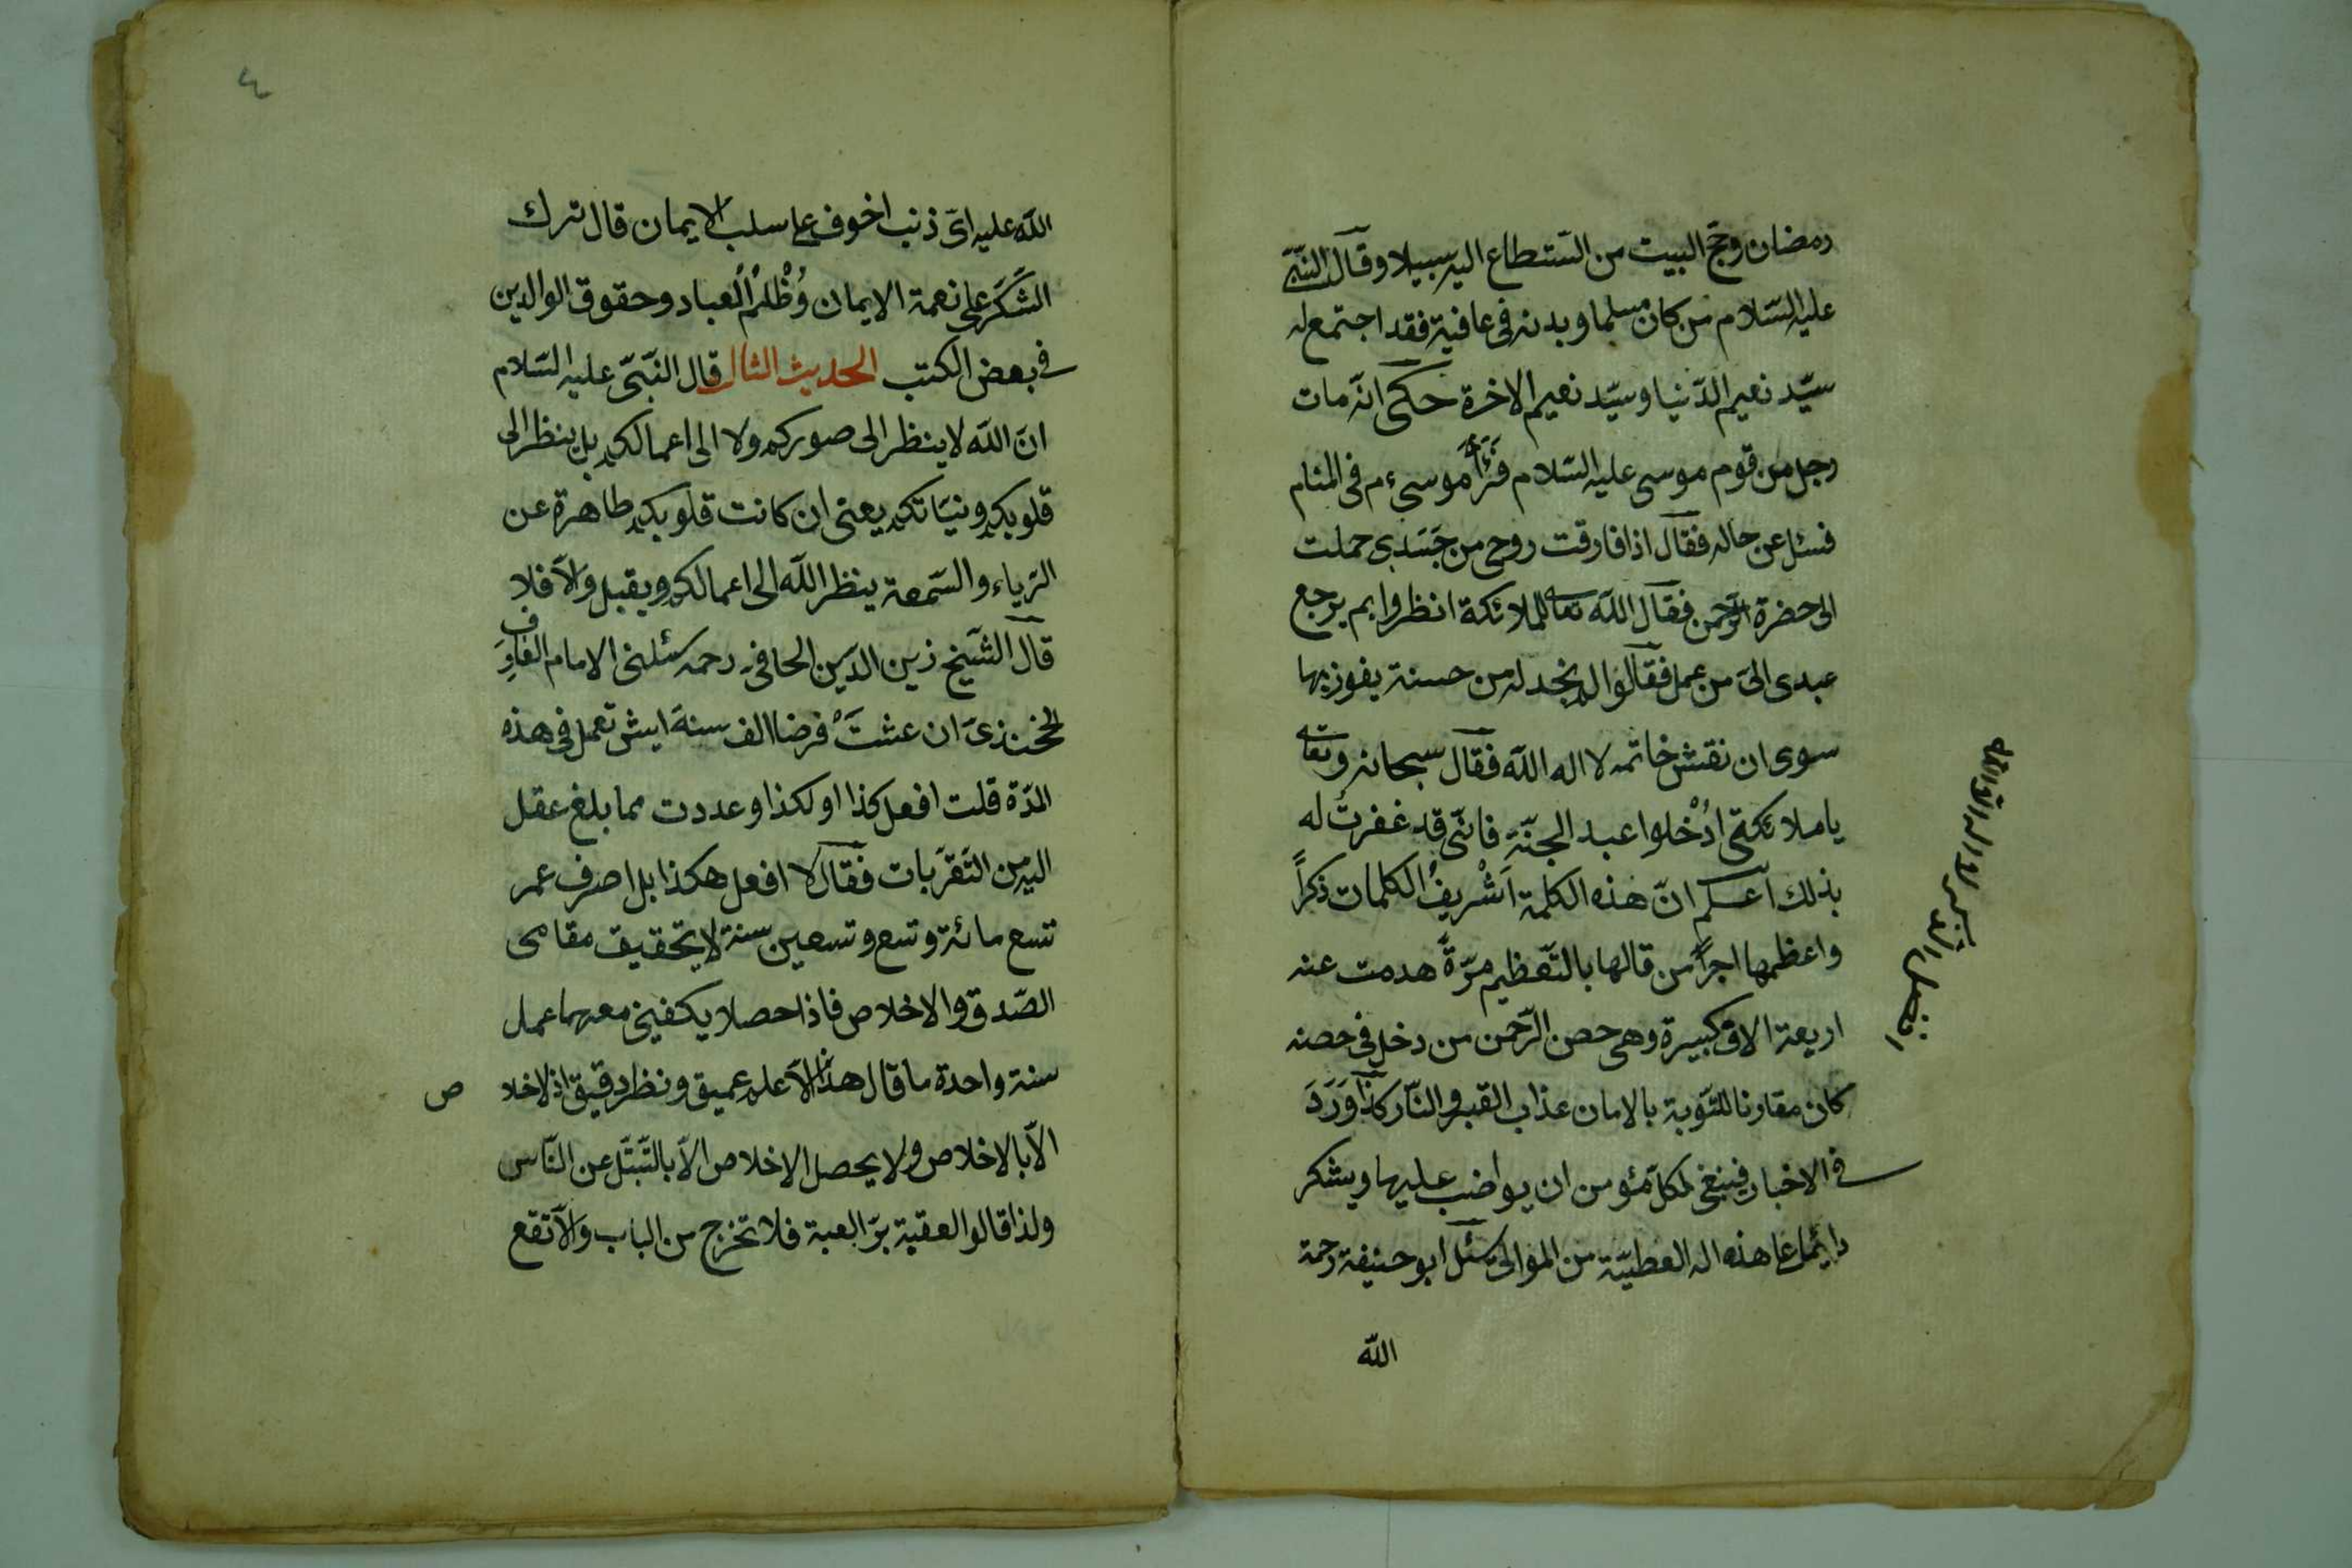 رمضان وحجّ البيت من استطاع اليه سبيلا وقال النبىّ
عليه السّلام من كان مسلما وبدنه فى عافية فقد اجتمع له
سيّد نعيم الدّنيا وسيّد نعيم الاخرة حكى انّه مات
رجل من قوم موسى عليه السّلام فَرَأَهُ موسى ءم فى المنام
فسئل عن حاله فقال اذا فارقت روحى من جَسَدِى حملت
الى حضرة الرّحمن فقال اللّه تعالى للملائكة انظروا بم يرجع
عبدى الىّ من عمل فقالوا لم نجد له من حسنة يفوز بها
سوى ان نقش خاتمه لا اله الا اللّه فقال سبحانه وتعالى
يا ملائكتى ادْخلوا عبد الجنّة فانّى قد غفرت له
بذلك اعلم انّ هذه الكلمة اَشْريفُ الكلمات ذكراً
واعظمها اجراً من قالها بالتّعظيم مرّةً هدمت عنه
اربعة الاف كبيرة وهى حصن الرّحمن من دخل فى حصنه
كان مقارنا للتّوبة بالامان عذاب القبر والنّار كذا وَرَدَ
فى الاخبار فينبغى لكلّ مؤمن ان يواضب عليها ويشكر
دائما على هذه العطيّة من الموالى سئل ابو حنيفة رحمة
اللّه
افضل الذكر لا اله الا اللّه
٤
اللّه عليه اىّ ذنب اخوف على سلب الايمان قال ترك
الشّكر على نعمة الايمان وُظْلمُ العباد وحقوق الوالدين
فى بعض الكتب الحديث الثالث قال النّبىّ عليه السّلام
انّ اللّه لا ينظر الى صوركم ولا الى اعمالكم بل ينظر الى
قلوبكم ونيّاتكم يعنى ان كانت قلوبكم طاهرة عن
الرّياء والسّمعة ينظر اللّه الى اعمالكم ويقبل والاّ فلا
قال الشّيخ زين الدّين الحافى رحمه سئلنى الامام
ان عشتَ فرضا الف سنة ايش تعمل فى هذه
المدّة قلت افعل كذا او لكذا وعددت مما بلغ عقل
اليه من التّقرّبات فقال لا افعل هكذا بل اصرف عمر
تسع مائة وتسع وتسعين سنة لا يتحقيق مقامى
الصّدق والاخلاص فاذا حصلا يكفينى معهما عمل
سنة واحدة ما قال هذا الاّ علم عميق ونظر دقيق اذ لا خلا
ص
الاّ بالاخلاص ولا يحصل الاخلاص الاّ بالتّبتّل عن النّاس
ولذا قالوا فلا تخرج من الباب والاّ تقع